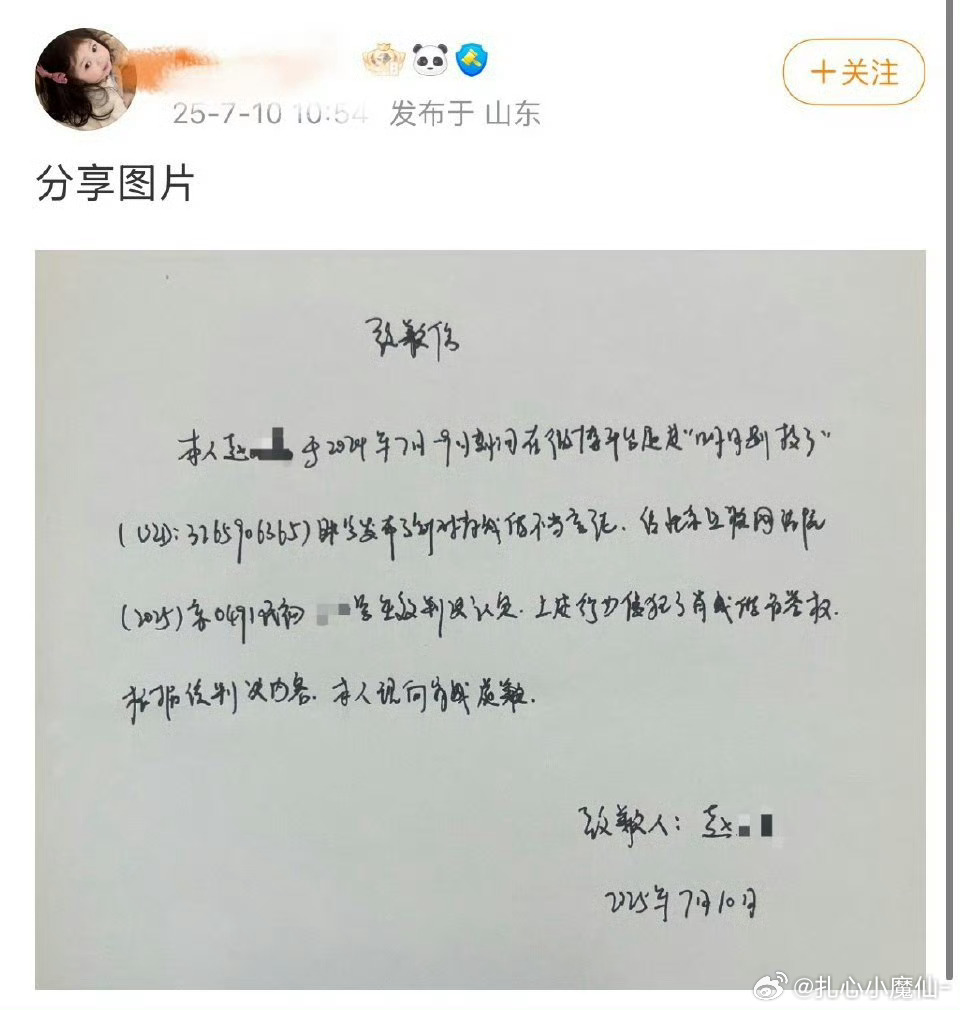 25-7-10 10:54 发布于 山东
+关注
分享图片
致歉信
本人赵 于2024年7月-9月期间在微博平台通过
(UID:3265906365)账号发布了针对肖战 不当言论.经北京互联网法院
(2025)京0491民初 号生效判决认定.上述行为侵犯了肖战 名誉权.
根据该判决内容.本人现向肖战 歉.
致歉人:赵
2025年7月10日
@扎心小魔仙-